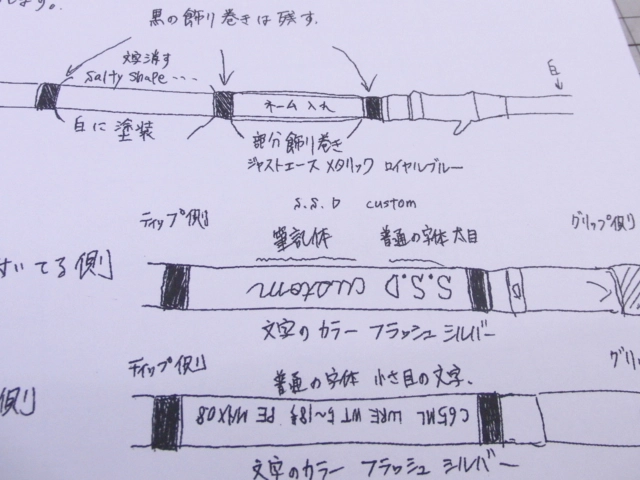 します。
黒の飾り巻きは残す.
文字消す
Salty Shape ---
白
ネーム入れ
白に塗装
部分飾り巻き
ジャストエース メタリック ロイヤルブルー
S.S.D custom
ティップ側
筆記体
普通の字体 太目
グリップ側
いてる側
S.S.D custom
文字のカラー フラッシュ シルバー
ティップ側
普通の字体 小さ目の文字.
グリッ
側
C65ML LURE WT 5~18g PE MAX0.8
文字のカラー フラッシュ シルバー